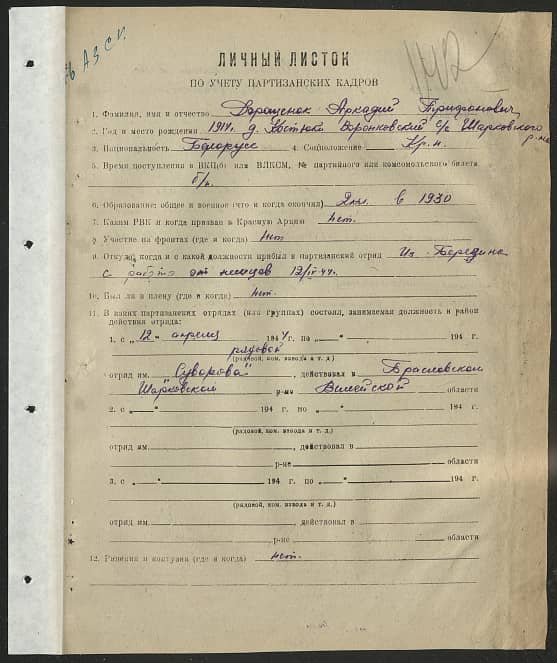 ЛИЧНЫЙ ЛИСТОК
ПО УЧЕТУ ПАРТИЗАНСКИХ КАДРОВ
1. Фамилия, имя и отчество Аркадий Трифонович
2. Год и место рождения 1914 г. д. Костюки Воронковский с/с Шарковского
р-на
3. Национальность Белорусс 4. Соцположение Кр-н.
5. Время поступления в ВКП(б) или ВЛКСМ, № партийного или комсомольского билета
б/п.
6. Образование: общее и военное (что и когда окончил) 2 кл. в 1930
7. Каким РВК и когда призван в Красную Армию Нет.
8. Участие на фронтах (где и когда) Нет
9. Откуда, когда и с какой должности прибыл в партизанский отряд Из
с работы от немцев 12/IV-44 г.
10. Был ли в плену (где и когда) Нет.
11. В каких партизанских отрядах (или группах) состоял, занимаемая должность и район
действия отряда:
1. с „12“ апреля 1944 г. по „ “ 194 г.
рядовой
(рядовой, ком. взвода и т. д.)
отряд им. "Суворова", действовал в Браславском
Шарковском р-не Вилейской области
2. с „ “ 194 г. по „ “ 194 г.
(рядовой, ком. взвода и т. д.)
отряд им. , действовал в
р-не области
3. с „ “ 194 г. по „ “ 194 г.
(рядовой, ком. взвода и т. д.)
отряд им. , действовал в
р-не области
12. Ранения и контузии (где и когда) Нет.